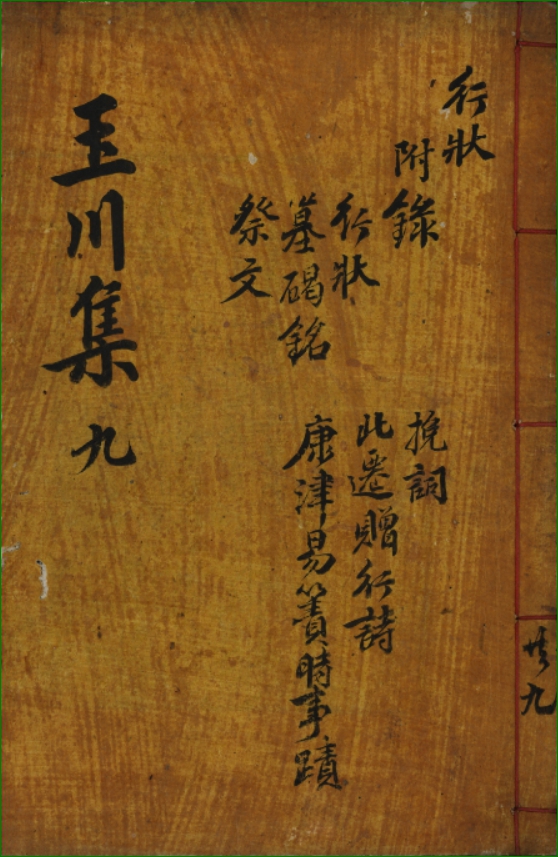 行狀
附錄
行狀
墓碣銘
祭文
挽詞
北遷贈行詩
康津易簀時事蹟
玉川集 九
共九